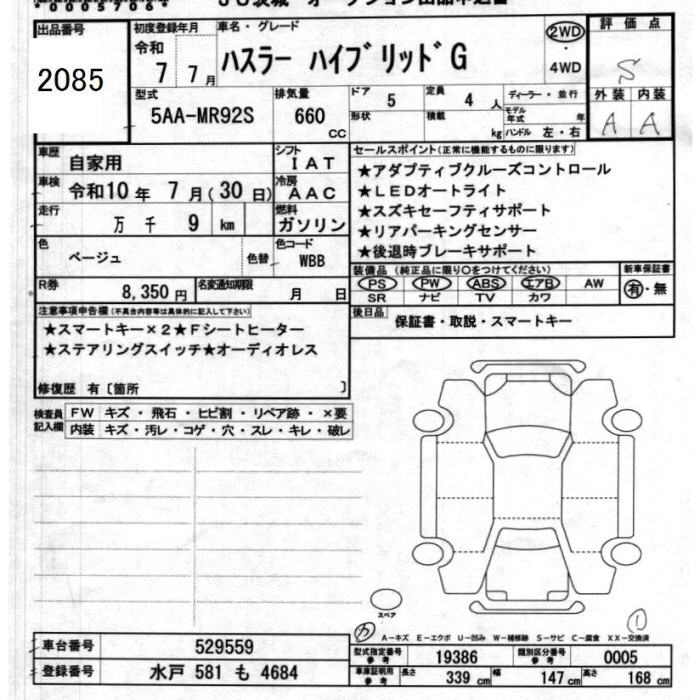 00057064
出品番号
2085
初度登録年月
令和
7 7月
車名・グレード
ハスラー ハイブリッドG
2WD
4WD
評価点
S
外装 内装
A A
型式
5AA-MR92S
排気量
660
CC
ドア 5
定員 4 人
ディーラー・並行
形状
積載 kg
モデル年式 年
ハンドル 左・右
車歴 自家用
シフト IAT
車検 令和10年 7月(30日)
冷房 AAC
走行 万 千 9 km
燃料 ガソリン
色 ベージュ 色替
色コード WBB
R券 8,350円
名変通知期限 月 日
セールスポイント(正常に機能するものに限ります)
★アダプティブクルーズコントロール
★LEDオートライト
★スズキセーフティサポート
★リアパーキングセンサー
★後退時ブレーキサポート
装備品(純正品に限り○をつけてください)
PS PW ABS エアB AW
SR ナビ TV カワ
新車保証書
有・無
後日品 保証書・取説・スマートキー
注意事項申告欄(不具合内容等は具体的に記入して下さい)
★スマートキー×2★Fシートヒーター
★ステアリングスイッチ★オーディオレス
修復歴 有〔箇所 〕
検査員記入欄
FW キズ・飛石・ヒビ割・リペア跡・×要
内装 キズ・汚レ・コゲ・穴・スレ・キレ・破レ
スペア
①
カ A-キズ E-エクボ U-凹み W-補修跡 S-サビ C-腐食 XX-交換済
車台番号 529559
登録番号 水戸 581 も 4684
型式指定番号 参考 19386
類別区分番号 参考 0005
車庫証明用 参考 長さ 339 cm 幅 147 cm 高さ 168 cm